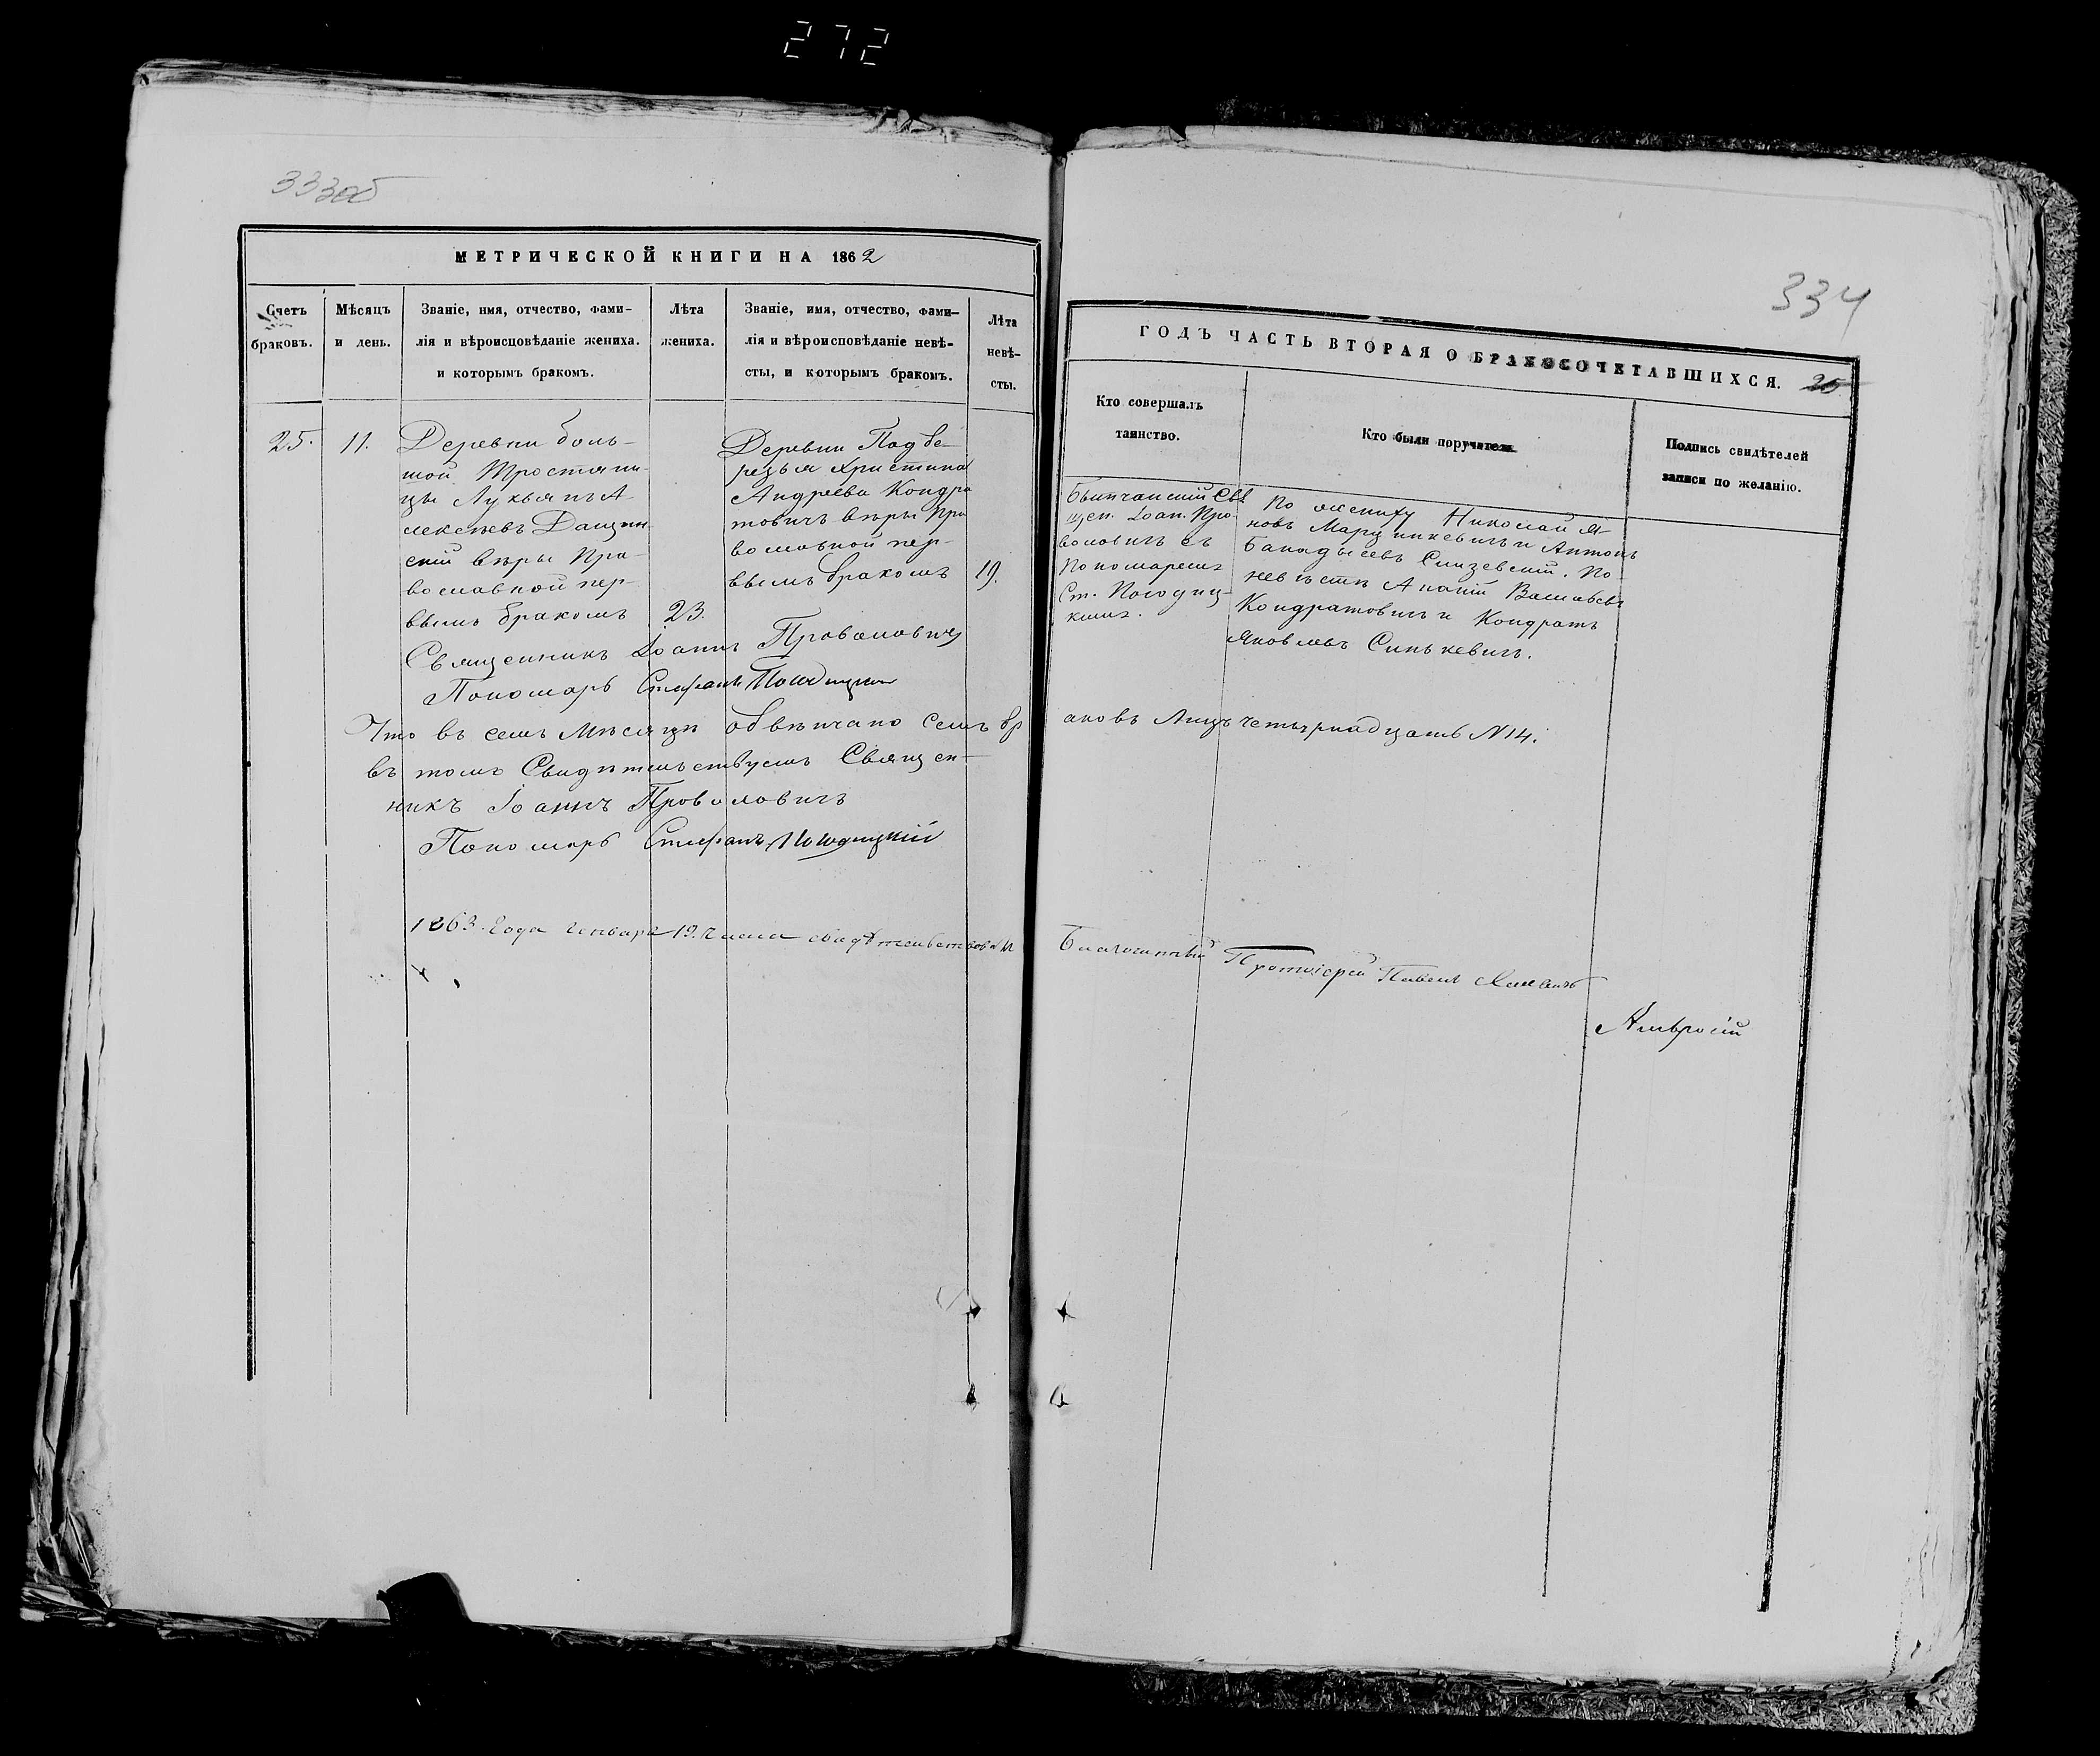 272
333об
МЕТРИЧЕСКОЙ КНИГИ НА 1862
Счетъ браковъ.
Мѣсяцъ и день.
Званіе, имя, отчество, фами-
лія и вѣроисповѣданіе жениха.
и которымъ бракомъ.
Лѣта жениха.
Званіе, имя, отчество, фами-
лія и вѣроисповѣданіе невѣ-
сты, и которымъ бракомъ.
Лѣта невѣ-
сты.
25.
11.
Деревни боль-
шой Тростяни-
цы Лукьянъ А-
лексѣевъ
скій вѣры Пра-
вославной пер-
вымъ бракомъ
23.
Деревни Подбе-
резья Христина
Андреева Кондра
товичъ вѣры пра
вославной пер-
вымъ бракомъ
19.
Священникъ Іоаннъ
Пономарь Стефанъ
Что въ семъ мѣсяцѣ обвѣнчано семь бр
въ томъ Свидѣтельствуемъ Священ-
никъ Іоаннъ
Пономарь Стефанъ
1863. Года Генваря 19. числа свидѣтельствовалъ
334
ГОДЪ ЧАСТЬ ВТОРАЯ О БРАКОСОЧЕТАВШИХСЯ.
25
Кто совершалъ
таинство.
Кто были поручители
Подпись свидѣтелей
записи по желанію.
щен. Іоан. Про-
воловичъ съ
Пономаремъ
Ст. Погодиц-
кимъ.
По жениху Николай Я-
новъ Марцинкевичъ и Антонъ
По
невѣстѣ Василіевъ
Кондратовичъ и Кондратъ
Яковлевъ Синькевичъ.
аковъ Лицъ четырнадцать N 14.
Благочинный Протоіерей Павелъ
Амвросій